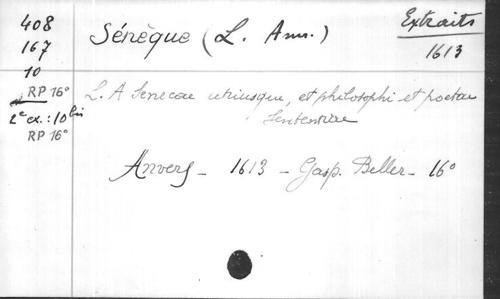 408
167
10
RP 16°
2e ex. : 10 bis
RP 16°
Sénèque (L. Ann.)
Extraits
1613
L. A Senecae utriusque, et philosophi et poetae
Sententiae
Anvers - 1613 - Gasp. Beller - 16°